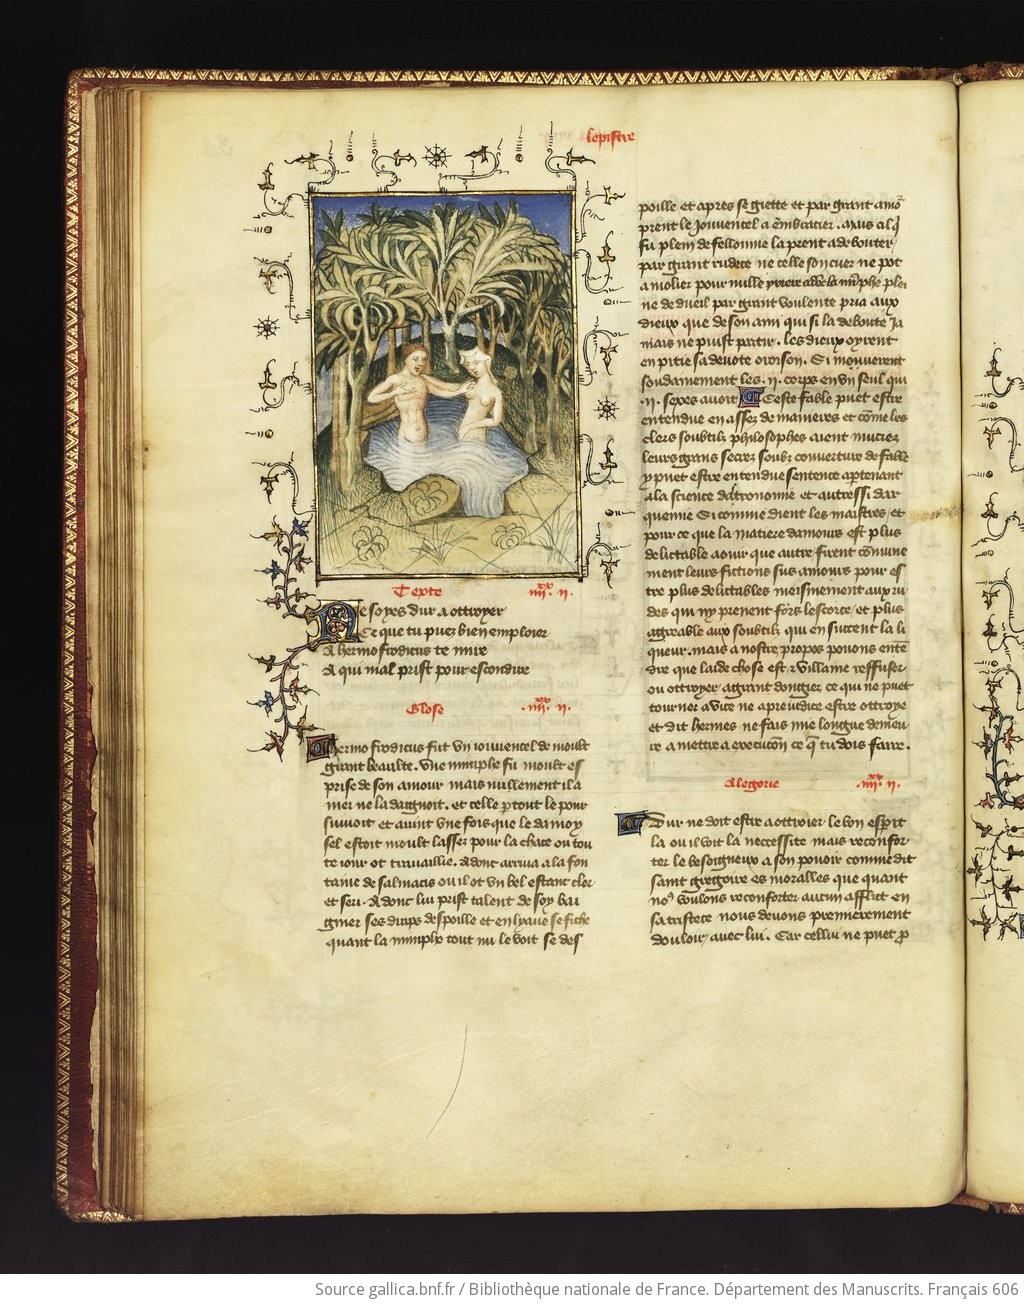 lepistre
Texte .iiiixx. ii.
Ne soyes dur a ottroyer
Ce que tu puez bien emploier
A hermofrodicus te mire
A qui mal prist pour escondire
Glose .iiiixx. ii.
Hermofrodicus fut un iouvencel de moult
grant beaulte. Une nimphe fu moult es
prise de son amour mais nullement il a
mer ne la daignoit. et celle p tout le pour
suivoit et avint une fois que le damoy
sel estoit moult lassez pour la chace ou tou
te iour ot travaillie. Adont arriva a la fon
taine de salmacis ou il ot un bel estanc cler
et seri. Adonc lui prist talent de soy bai
gnier ses draps despoille et en lyaue se fiche
quant la nimphe tout nu le voit se des
poille et apres se giette et par grant amo
prent le iouvencel a embracier. Mais cil q
fu plein de fellonnie la prent a debouter
par grant rudece ne celle son cuer ne pot
amolier pour nulle la nimphe plei
ne de dueil par grant voulente pria aux
dieux que de son ami qui si la deboute ia
mais ne puist partir. Les dieux oyrent
en pitie sa devote oroison. Si mouverent
soudainement les .ii. corps en un seul qui
.ii. sexes avoit Ceste fable puet estre
entendue en assez de manieres et come les
clers soubtilz philosophes aient muciez
leurs grans secrez soubz couverture de fable
y puet estre entendue sentence aptenant
a la science dastronomie et autressi dar
quemie Si comme dient les maistres et
pour ce que la matiere damours est plus
delictable a our que autre firent comune
ment leurs fictions sus amours pour es
tre plus delictables meismement aux ru
des qui ny prenent fors lescorce et plus
agreable aux soubtilz qui en succent la li
queur. mais a nostre propos povons ente
dre que laide chose est et villaine reffuser
ou ottroyer a grant dongier ce qui ne puet
tourner a vice ne a preiudice estre ottroye
et dit hermes ne fais mie longue demeu
re a mettre a execucion ce q tu dois faire.
Alegorie .iiiixx. ii.
Dur ne doit estre a ottroier le bon esprit
la ou il voit la necessite mais reconfor
ter le besoigneux a son pouoir comme dit
saint gregoire es moralles que quant
nos voulons reconforter aucun afflict en
sa tristece nous devons premierement
douloir avec lui. Car cellui ne puet p
Source gallica.bnf.fr / Bibliothèque nationale de France. Département des Manuscrits. Français 606